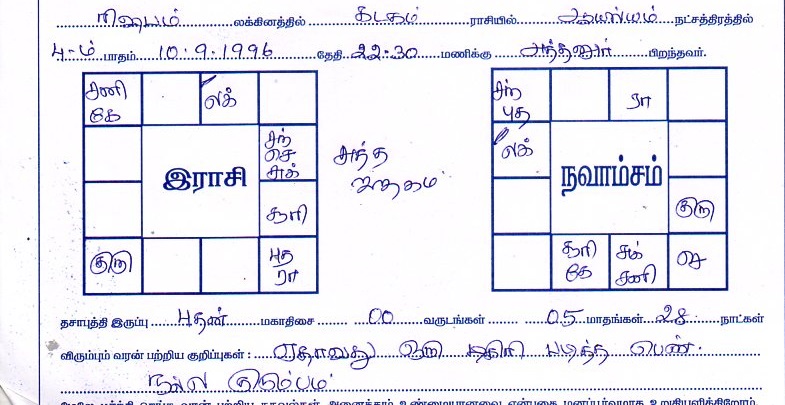 ரிஷபம் லக்கினத்தில் கடகம் ராசியில் ஆயில்யம் நட்சத்திரத்தில்
4-ம் பாதம் 10.9.1996 தேதி 22:30 மணிக்கு பிறந்தவர்.
சனி
கே
லக்
சந்
செ
சுக்
சூரி
புத
ரா
குரு
இராசி
சுத்த
ஜாதகம்
சந்
புத
ரா
லக்
குரு
செ
சுக்
சனி
சூரி
கே
நவாம்சம்
தசாபுத்தி இருப்பு புதன் மகாதிசை 00 வருடங்கள் 05 மாதங்கள் 28 நாட்கள்
விரும்பும் வரன் பற்றிய குறிப்புகள் : ஏதாவது ஒரு டிகிரி படித்த பெண்.
நல்ல குடும்பம்